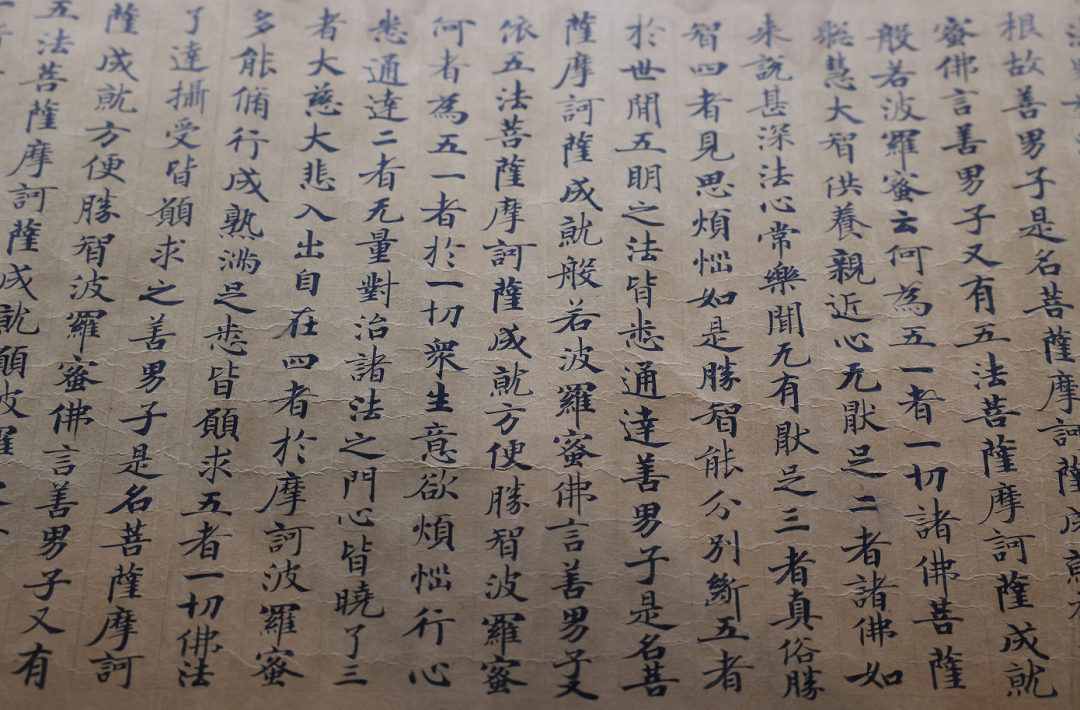 根故善男子是名菩薩摩訶薩成就
蜜佛言善男子又有五法菩薩摩訶薩成就
般若波羅蜜云何為五一者一切諸佛菩薩
聡慧大智供養親近心无猒足二者諸佛如
来說甚深法心常樂聞无有猒足三者真俗勝
智四者見思煩惱如是勝智能分別斷五者
於世間五明之法皆悉通達善男子是名菩
薩摩訶薩成就般若波羅蜜佛言善男子又
依五法菩薩摩訶薩成就方便勝智波羅蜜
何者為五一者於一切衆生意欲煩惱行心
悉通達二者无量對治諸法之門心皆曉了三
者大慈大悲入出自在四者於摩訶波羅蜜
多能脩行成熟滿足悉皆願求五者一切佛法
了達攝受皆願求之善男子是名菩薩摩訶
薩成就方便勝智波羅蜜佛言善男子又有
五法菩薩摩訶薩成就願波羅